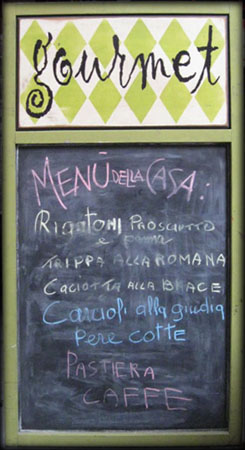 gourmet
MENÙ DELLA CASA:
RIGATONI PROSCIUTTO
e panna
TRIPPA ALLA ROMANA
CACIOTTA ALLA BRACE
Carciofi alla giudia
PERE COTTE
PASTIERA
CAFFE